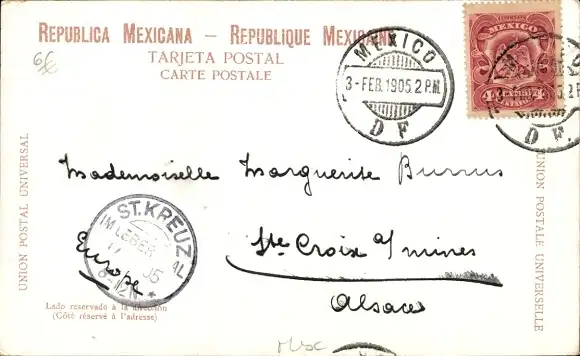 REPUBLICA MEXICANA — REPUBLIQUE MEXICAINE
TARJETA POSTAL
CARTE POSTALE
MEXICO
3-FEB.1905.2 P.M.
D F
MEXICO
4 CENTAVOS 4
D. F.
UNION POSTAL UNIVERSAL
UNION POSTALE UNIVERSELLE
Mademoiselle Marguerite Burrus
Ste Croix a/mines
Alsace
Europe
ST. KREUZ
IM LEBER AL
05
Lado reservado à la dirección
(Côté réservé à l'adresse)